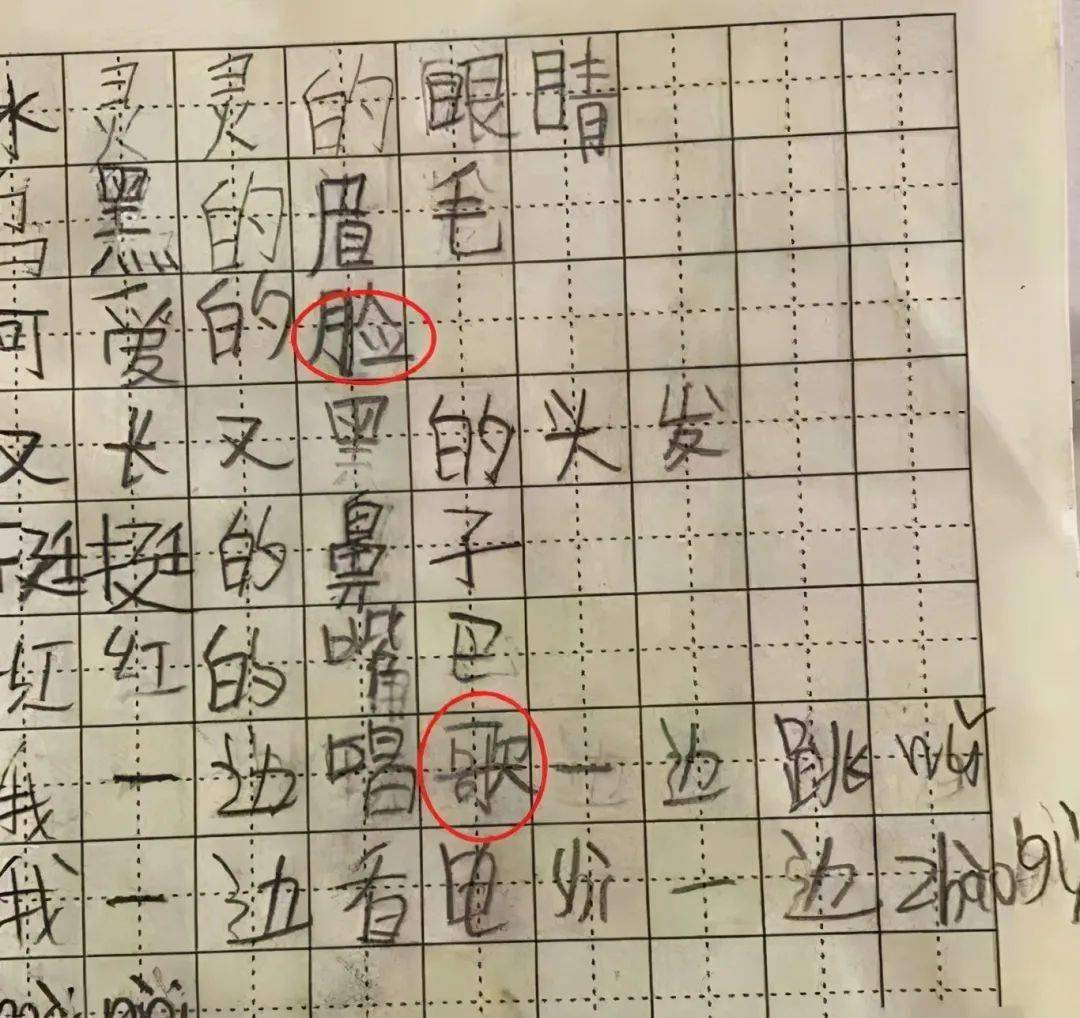 水灵灵的眼睛
黑的眉毛
可爱的脸
又长又黑的头发
挺挺的鼻子
红红的嘴巴
我一边唱歌一边跳wǔ
我一边看电 一边zhào